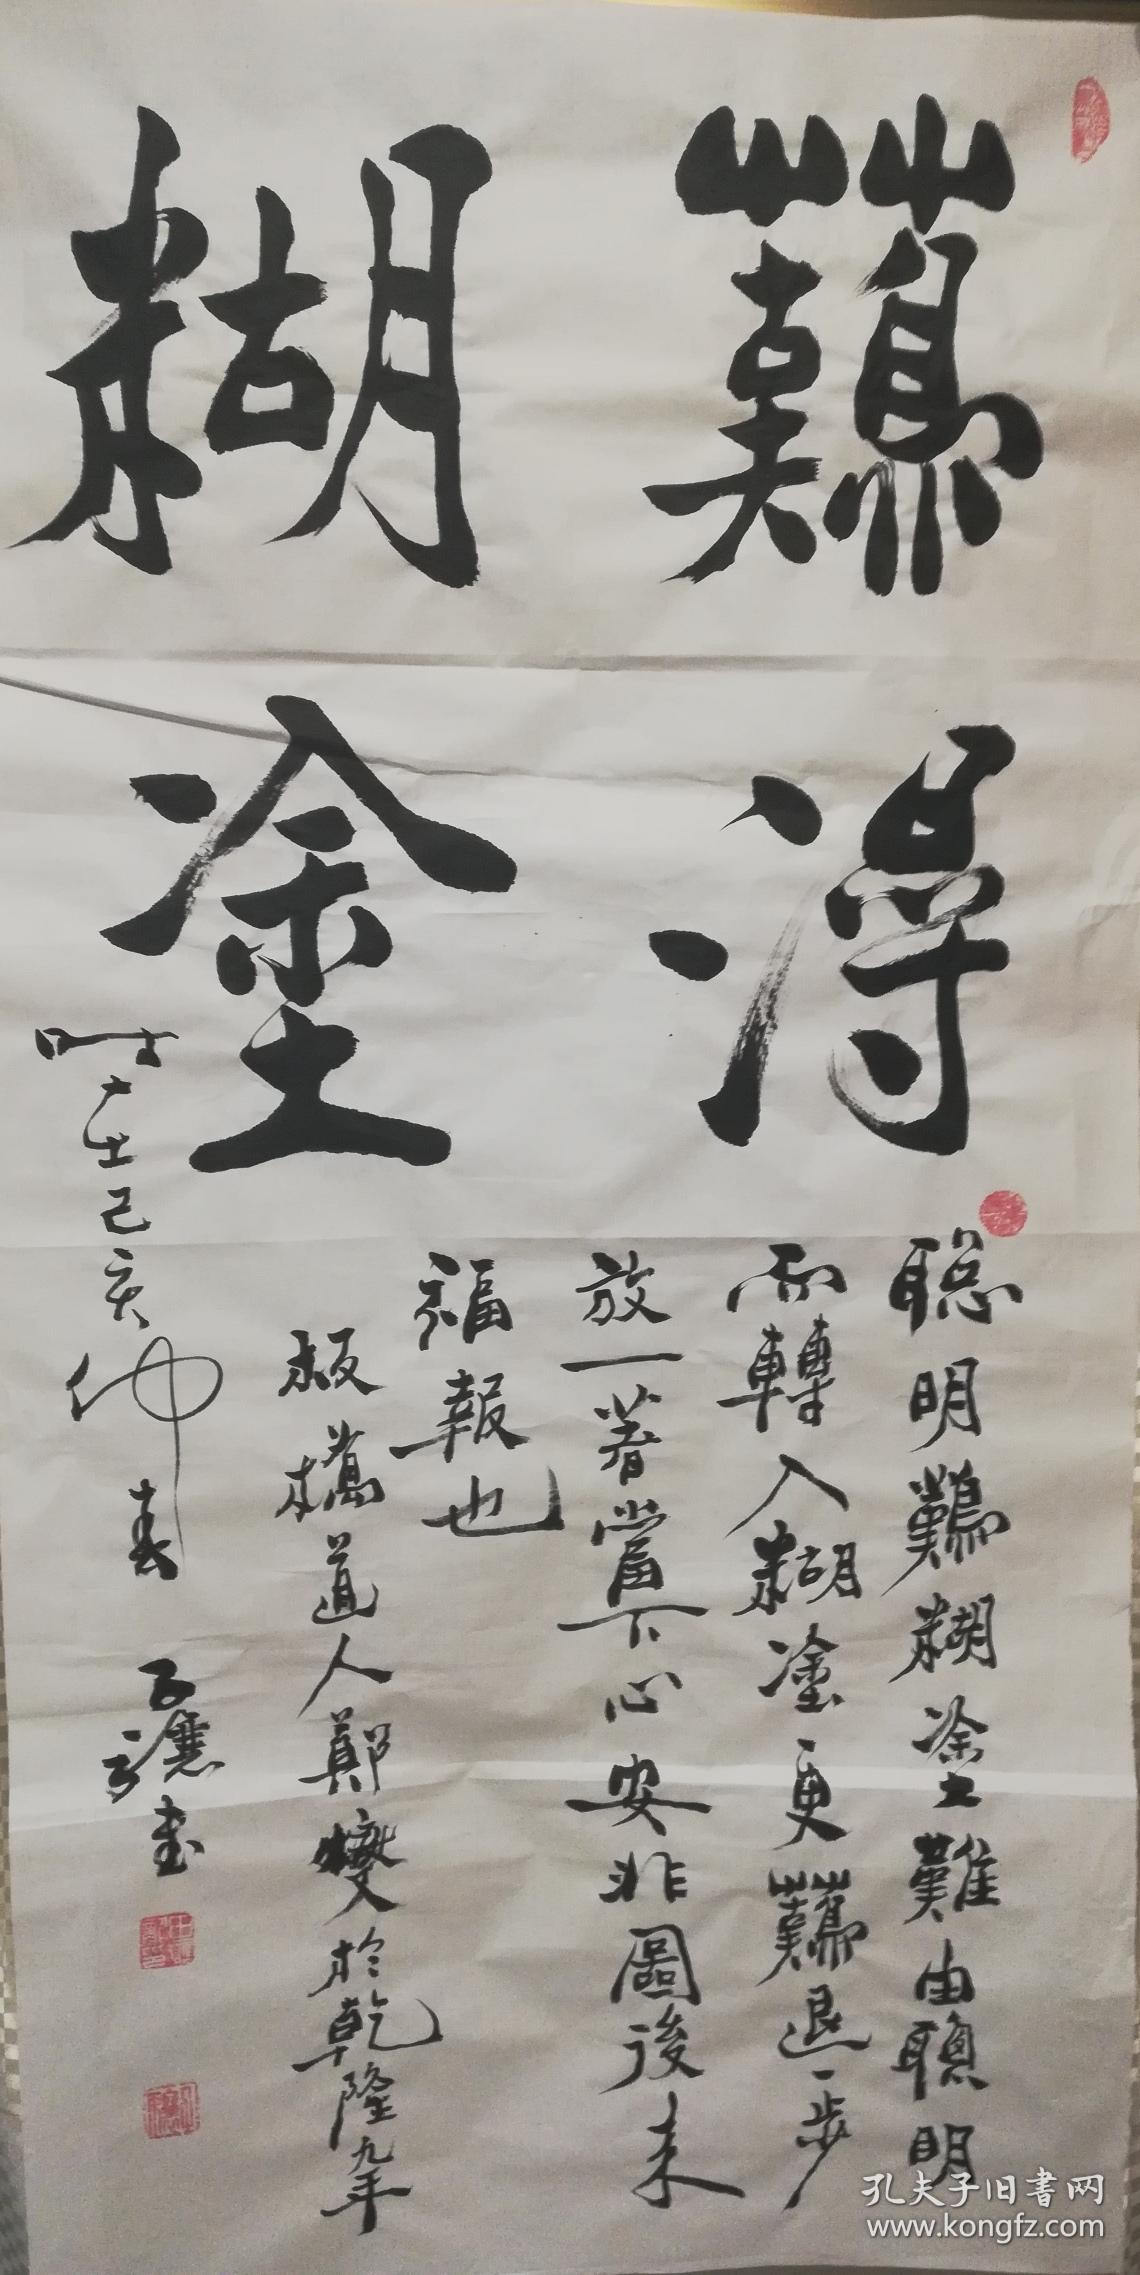 難得
糊塗
聪明難糊塗難由聰明
而轉入糊塗更難退一步
放一著當下心安非圖後来
福報也
板橋道人鄭燮於乾隆九年
時在己亥仲春
書
孔夫子旧書网
www.kongfz.com